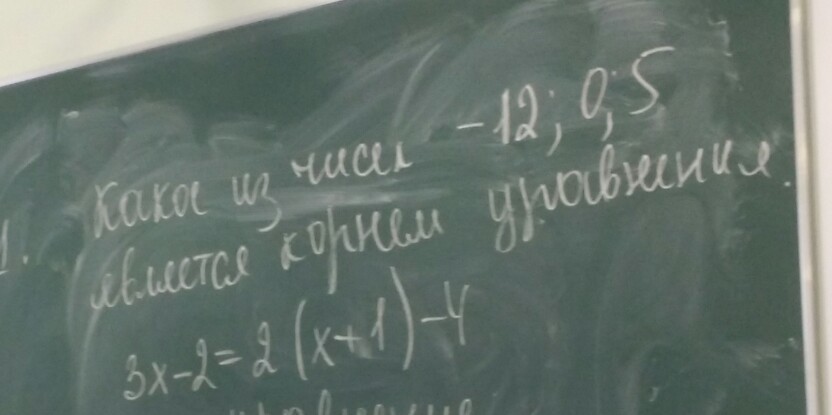 1. Какое из чисел -12; 0; 5
является корнем уравнения.
3x-2=2(x+1)-4
уравнение